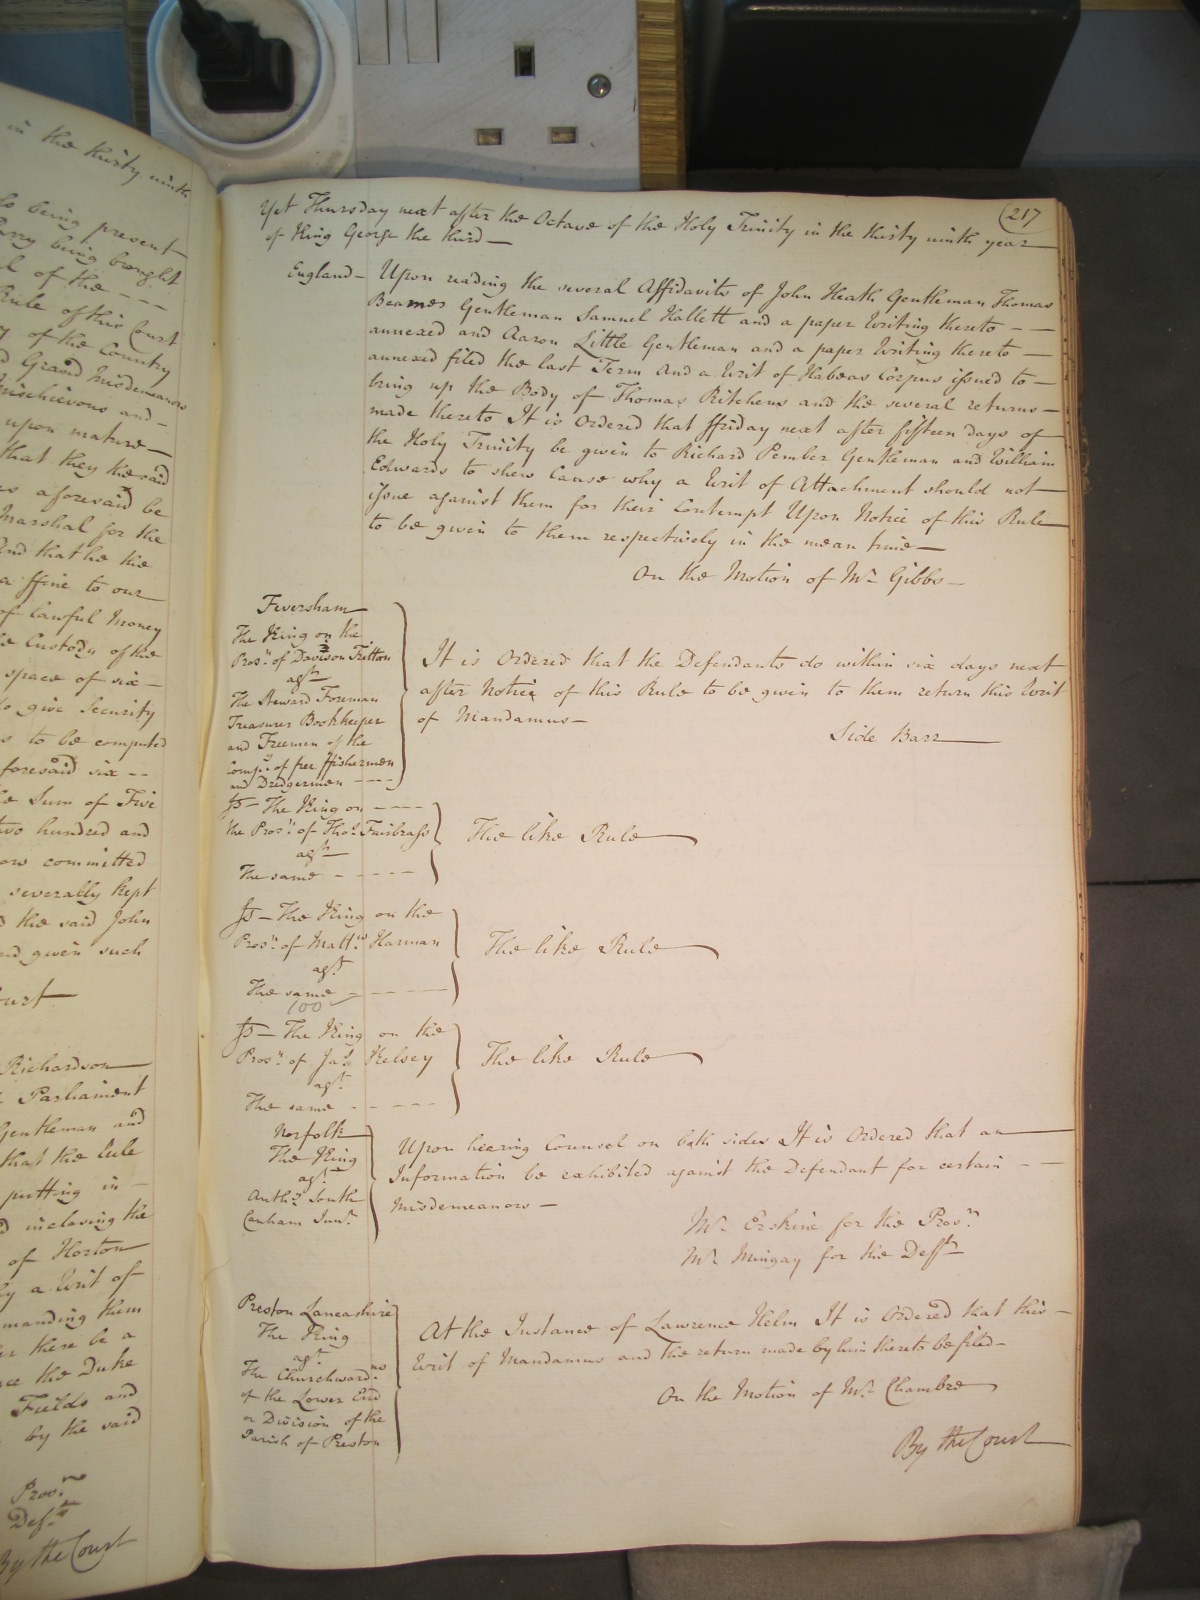 in the thirty ninth
so being present
being brought
l of the - - -
Rule of this Court
of the Country
Grand Misdemeanors
Mischievous and -
upon mature -
that they the said
rs aforesaid be
Marshal for the
And that he the
a ffine to our
of lawful Money
Custody of the
space of six -
to give Security
s to be computed
foresaid six - -
Sum of Five
two hundred and
ow committed
severally kept
d the said John
and given such
ourt
Richardson
Parliament
Gentleman and
that the
putting in -
d inclosing the
of Horton
by a Writ of
manding them
there be a
the Duke
Fields and
by the said
Pros.rs
Def.ts
By the Court
217
Yet Thursday next after the Octave of the Holy Trinity in the thirty ninth year
of King George the third -
England - Upon reading the several Affidavits of John Heath Gentleman Thomas
Beames Gentleman Samuel Hallett and a paper Writing thereto - -
annexed and Aaron Little Gentleman and a paper Writing thereto -
annexed filed the last Term And a Writ of Habeas Corpus issued to -
bring up the Body of Thomas Ritchens and the several returns -
made thereto It is Ordered that ffriday next after fifteen days of
the Holy Trinity be given to Richard Pember Gentleman and William
Edwards to shew Cause why a Writ of Attachment should not
issue against them for their Contempt Upon Notice of this Rule
to be given to them respectively in the mean time -
On the Motion of Mr Gibbs -
Feversham
The King on the
Pros.n of Davison Tritton
agt
The Steward Foreman
Treasurer Bookkeeper
and Freemen of the
Comp.y of free ffishermen
and Dredgermen - - - -
It is Ordered that the Defendants do within six days next
after Notice of this Rule to be given to them return this Writ
of Mandamus -
Side Barr
Js - The King on - - - -
the Pros.n of Tho.s Fairbrass
agt
The same - - - - -
The like Rule
Js - The King on the
Pros.n of Matt.w Harman
agt
The same - - - - -
100
The like Rule
Js - The King on the
Pros.n of Ja.s Kelsey
agt
The same - - - - -
The like Rule
Norfolk
The King
agt
Anth.y South
Canham Junr
Upon hearing Counsel on both sides It is Ordered that an
Information be exhibited against the Defendant for certain - -
Misdemeanors -
Mr Erskine for the Pros.n
Mr Mingay for the Defft
Preston Lancashire
The King
agt
The Churchward.ns
of the Lower End
or Division of the
Parish of Preston
At the Instance of Lawrence Helm It is Ordered that this -
Writ of Mandamus and the return made by him thereto be filed -
On the Motion of Mr Chambre
By the Court